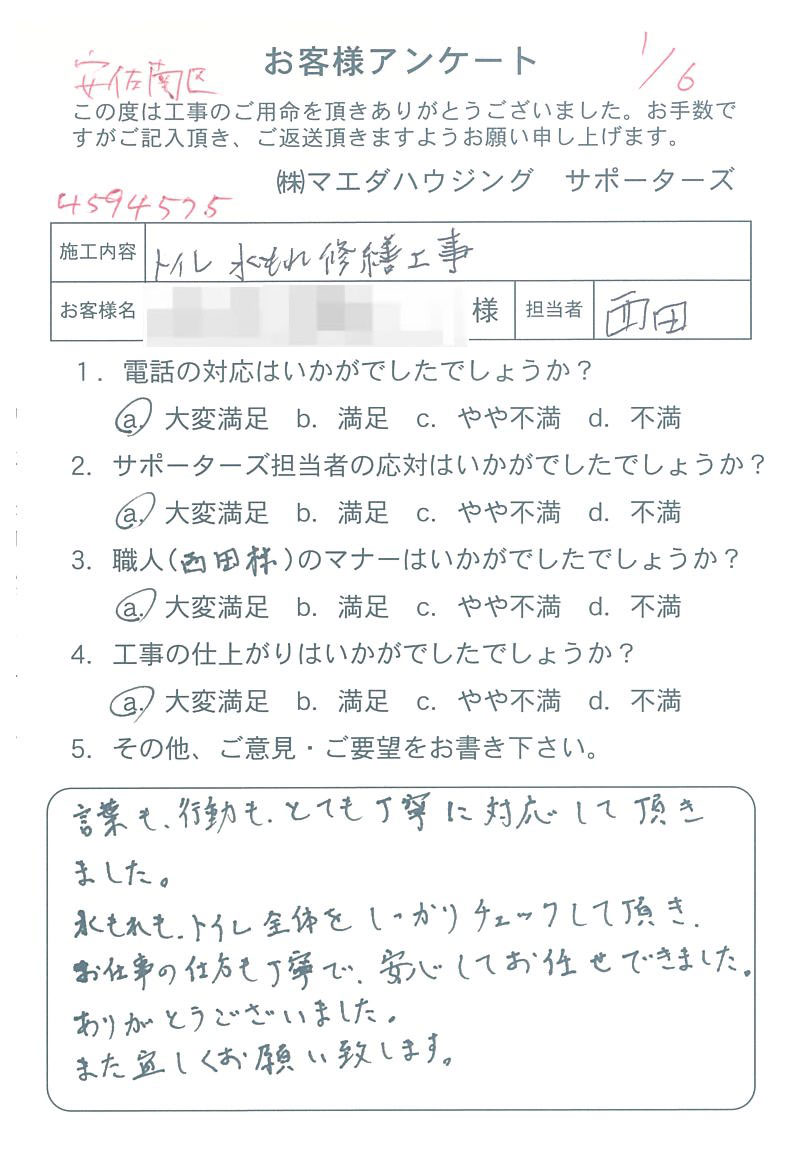 安佐南区
お客様アンケート
1/6
この度は工事のご用命を頂きありがとうございました。お手数で
すがご記入頂き、ご返送頂きますようお願い申し上げます。
㈱マエダハウジング サポーターズ
4594575
施工内容 トイレ 水もれ修繕工事
お客様名 様 担当者 西田
1. 電話の対応はいかがでしたでしょうか？
a. 大変満足 b. 満足 c. やや不満 d. 不満
2. サポーターズ担当者の応対はいかがでしたでしょうか？
a. 大変満足 b. 満足 c. やや不満 d. 不満
3. 職人(西田様)のマナーはいかがでしたでしょうか？
a. 大変満足 b. 満足 c. やや不満 d. 不満
4. 工事の仕上がりはいかがでしたでしょうか？
a. 大変満足 b. 満足 c. やや不満 d. 不満
5. その他、ご意見・ご要望をお書き下さい。
言葉も、行動も、とても丁寧に対応して頂き
ました。
水もれも、トイレ全体をしっかりチェックして頂き、
お仕事の仕方も丁寧で、安心してお任せできました。
ありがとうございました。
また宜しくお願い致します。